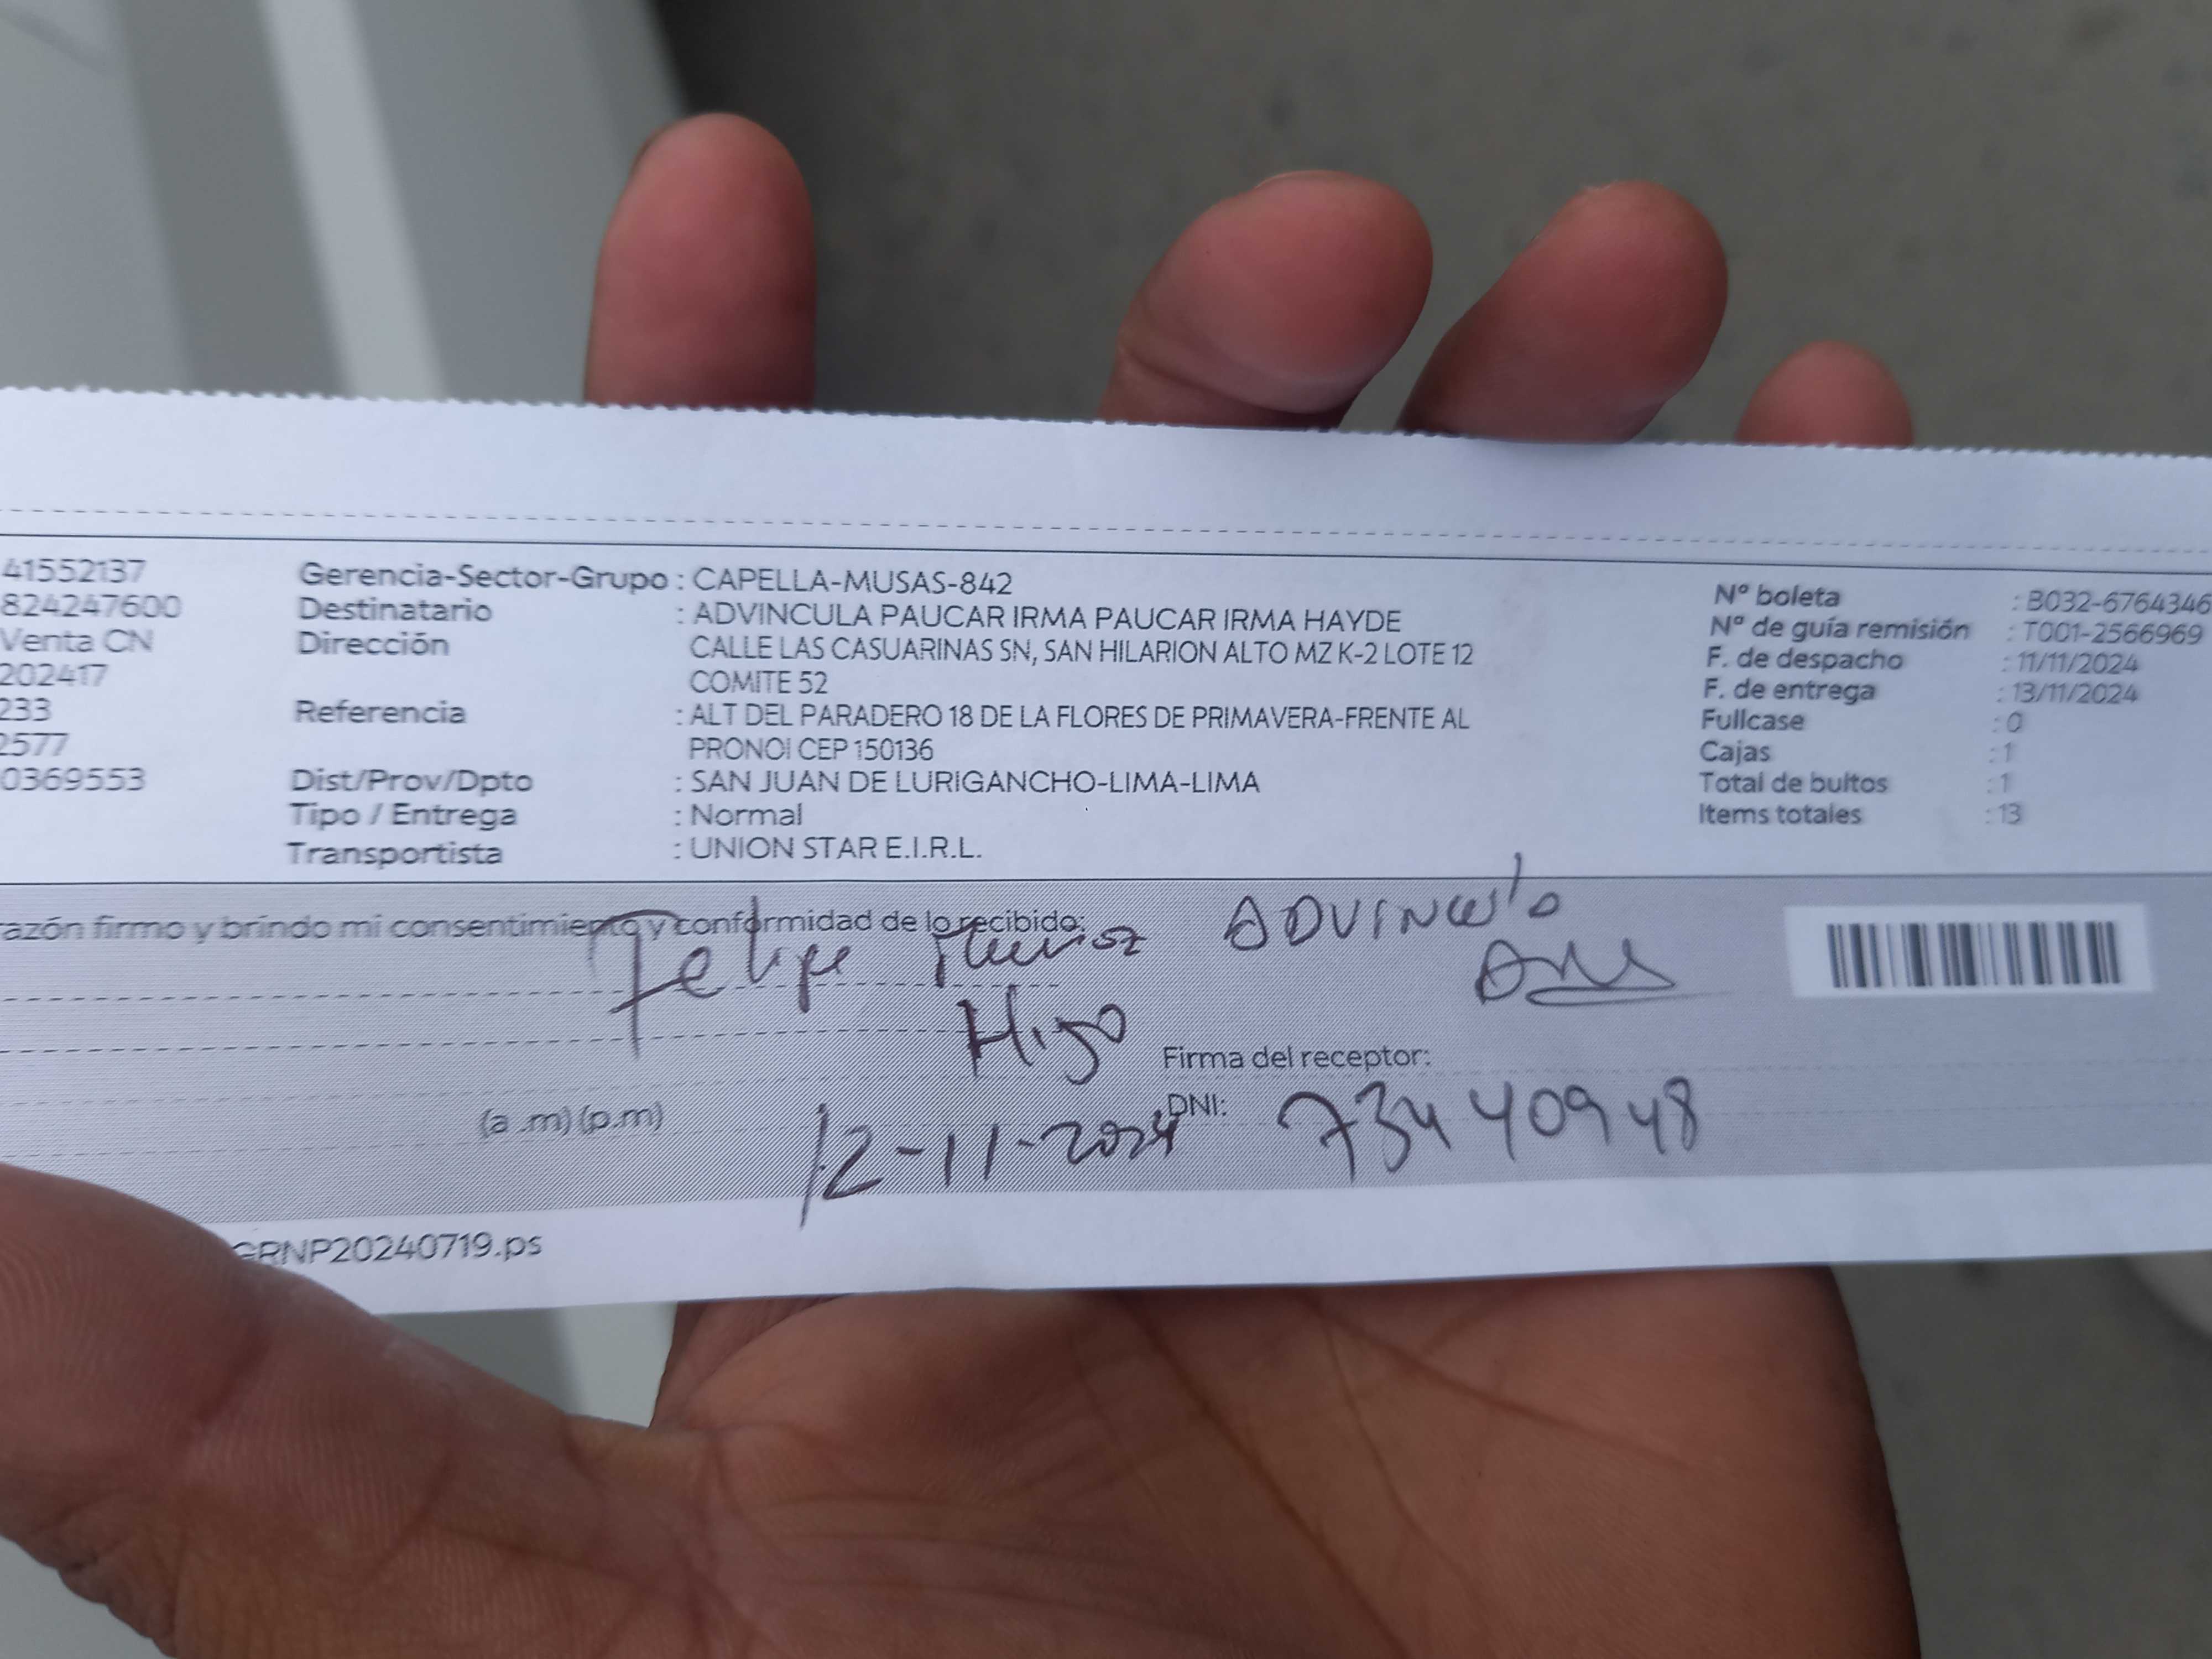 41552137 Gerencia-Sector-Grupo : CAPELLA-MUSAS-842 N° boleta : B032-6764346
824247600 Destinatario : ADVINCULA PAUCAR IRMA PAUCAR IRMA HAYDE N° de guía remisión : T001-2566969
Venta CN Dirección CALLE LAS CASUARINAS SN, SAN HILARION ALTO MZ K-2 LOTE 12 F. de despacho : 11/11/2024
202417 COMITE 52 F. de entrega : 13/11/2024
233 Referencia : ALT DEL PARADERO 18 DE LA FLORES DE PRIMAVERA-FRENTE AL Fullcase : 0
2577 PRONOI CEP 150136 Cajas : 1
0369553 Dist/Prov/Dpto : SAN JUAN DE LURIGANCHO-LIMA-LIMA Total de bultos : 1
Tipo / Entrega : Normal Items totales : 13
Transportista : UNION STAR E.I.R.L.
razón firmo y brindo mi consentimiento y conformidad de lo recibido:
Felipe Muñoz ADVINCULA
Hijo
Firma del receptor:
(a .m) (p.m) 12-11-2024 DNI: 73440948
GRNP20240719.ps